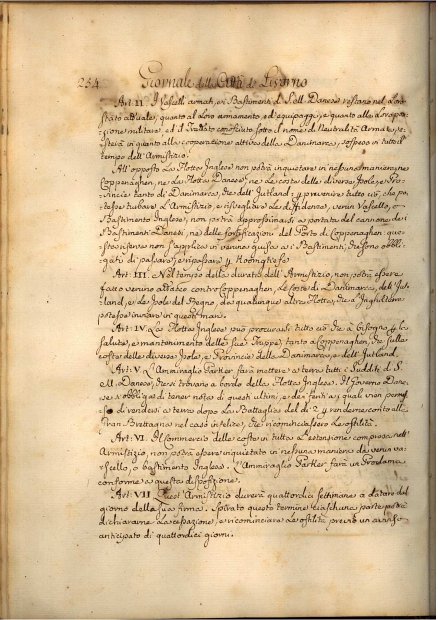 234 Giornale della Città di Livorno
Art. II. I Vascelli armati, e i Bastimenti d. S. ell. Danese restano nel loro
stato attuale, quanto al loro armamento, ed equipaggi, e quanto alla loro po-
sizione militare, ed il Trattato conosciuto sotto il nome di Neutralità Armata, re-
sterà in quanto alla cooperazione attiva della Danimarca, sospeso in tutto il
tempo dell'Armistizio.
All'opposto La Flotta Inglese non potrà inquietare in nessuna maniera
Coppenaghen, ne la Flotta Danese, ne le coste delle diverse Isole, e Pro-
vincie tanto di Danimarca, che dell'Jutland: e p. prevenire tutto ciò, che po-
tesse turbare l'Armistizio, e risvegliare le diffidenze, verun Vascello, o
Bastimento Inglese, non potrà approssimarsi a portata del cannone dei
Bastimenti Danesi, ne delle fortificazioni del Porto di Coppenaghen: que-
sto non s'applica in veruna guisa a i Bastimenti, che sono obbli-
gati di passare, e ripassare p.
Art. III. Nel tempo della durata dell'Armistizio, non potrà essere
fatto verun attacco contro Coppenaghen, le coste di Danimarca, dell'Jut-
land, e le Isole del Regno, da qualunque altra Flotta, che l'Inghilterra
potesse inviare in questi mari.
Art. IV. La Flotta Inglese può procurarsi tutto ciò che à bisogno p. la
salute, e mantenimento delle sue Truppe, tanto a Coppenaghen, che sulle
coste delle diverse Isole, e Provincie della Danimarca, e dell'Jutland.
Art. V. L'Ammiraglio Parker farà mettere a terra tutti i Sudditi d. S.
ell. Danese, che si trovano a bordo della Flotta Inglese. Il Governo Dane-
se si obbliga di tener nota di questi ultimi, e dei feriti, a i quali vien permes-
so di rendersi a terra dopo la Battaglia del dì 2. p. renderne conto alla
Gran Brettagna nel caso infelice, che ricominciassero le ostilità.
Art. VI. Il Commercio delle coste in tutta l'estensione compresa nell'
Armistizio, non potrà essere inquietato in nessuna maniera da verun va-
scello, o bastimento Inglese. L'Ammiraglio Parker farà un Proclama
conforme a questa disposizione.
Art. VII. Quest'Armistizio durerà quattordici settimane a datare dal
giorno della sua firma. Spirato questo termine ciascuna parte potrà
dichiararne la cessazione, e ricominciare le ostilità previo un avviso
anticipato di quattordici giorni.